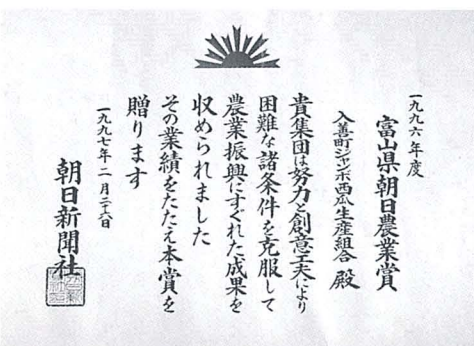 一九九六年度
富山県朝日農業賞
入善町ジャンボ西瓜生産組合 殿
貴集団は努力と創意工夫により
困難な諸条件を克服して
農業振興にすぐれた成果を
収められました
その業績をたたえ本賞を
贈ります
一九九七年二月二十六日
朝日新聞社